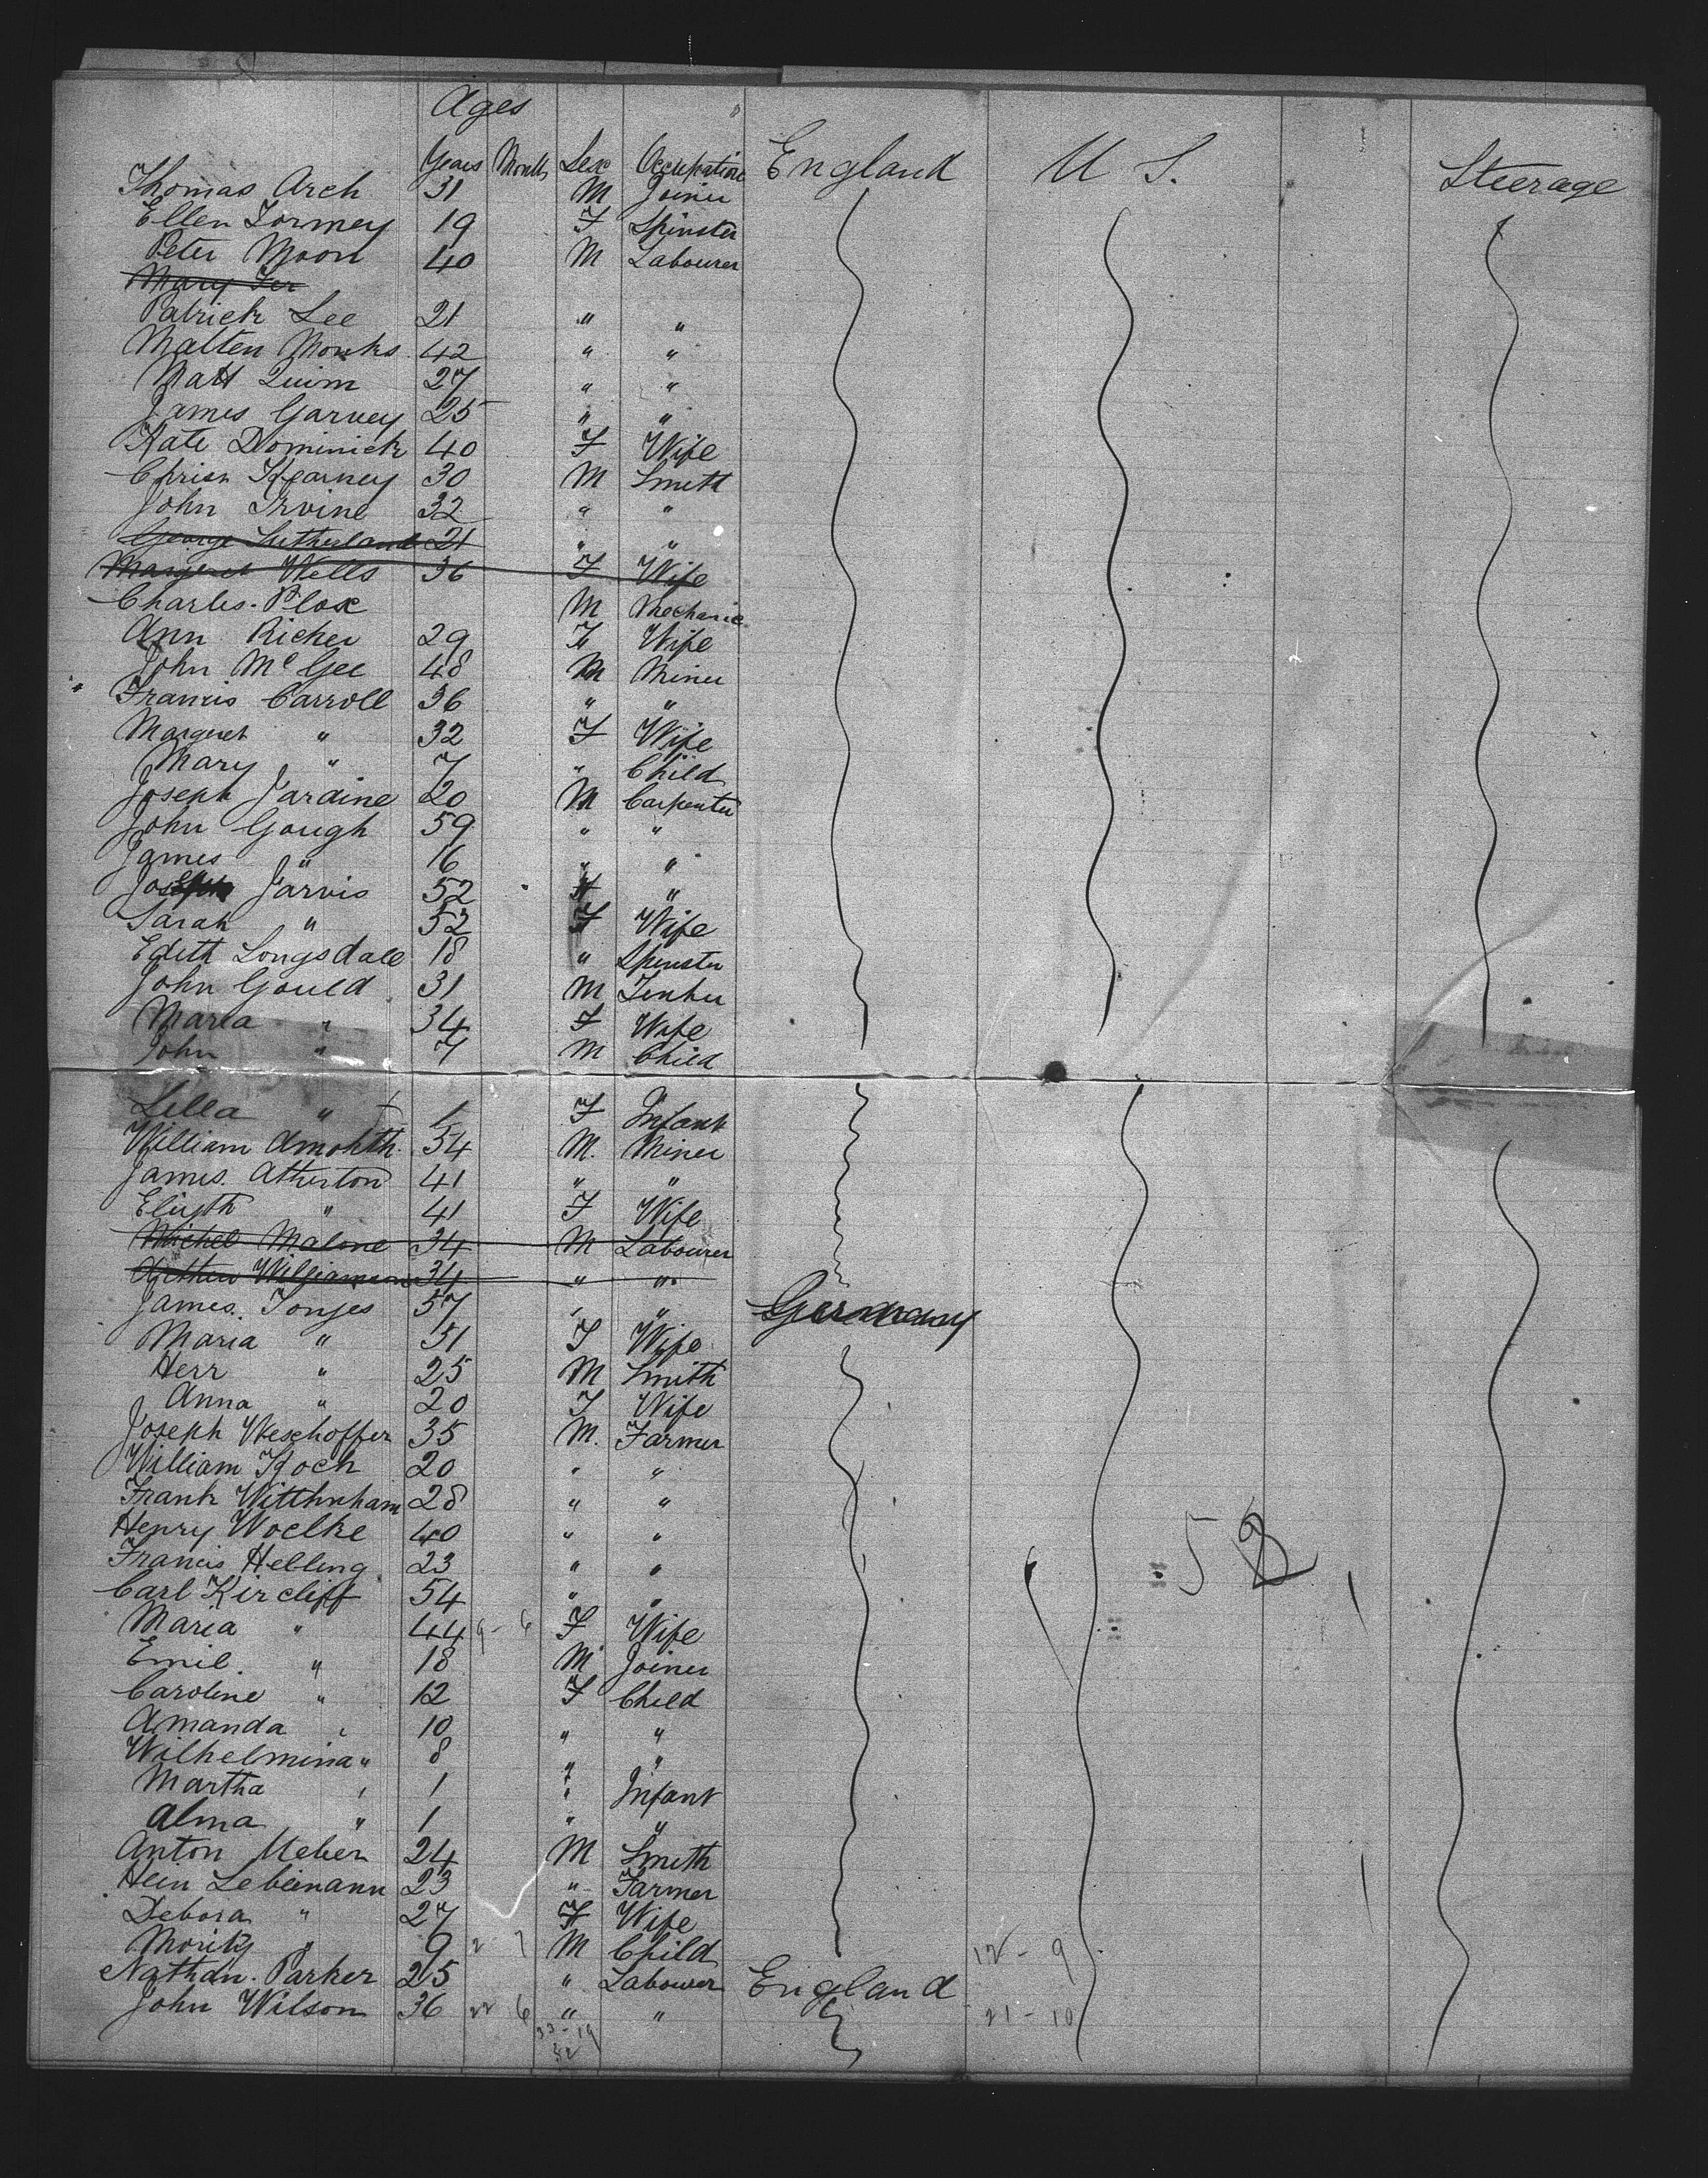 Ages
Years Months Sex Occupation England U S. Steerage
Thomas Arch 31 M Joiner
Ellen Tormey 19 F Spinster
Peter Moon 40 M Labourer
Mary
Patrick Lee 21 " "
Malten Monks 42 " "
Matt Quim 27 " "
James Garvey 25 " "
Kate Dominick 40 F Wife
Chrisn Kearney 30 M Smith
John Irvine 32 " "
George Sutherland 21 " "
Margaret Wells 36 F Wife
Charles. Plox M Mechanic
Ann Richer 29 F Wife
John McGee 48 M Miner
Francis Carroll 36 " "
Margret " 32 F Wife
Mary " 7 " Child
Joseph Jardine 20 M Carpenter
John Gough 59 " "
James " 16 " "
Joseph Jarvis 52 "
Sarah " 52 F Wife
Edith Longsdale 18 " Spinster
John Gould 31 M
Maria " 34 F Wife
John " 7 M Child
Lilla " 1 F Infant
William 54 M. Miner
James. Atherton 41 " "
" 41 F Wife
Michel Malone 34 M Labourer
Williamson 34 " "
James. Tonjes 57 " " Germany
Maria " 51 F Wife
Herr " 25 M Smith
Anna " 20 F Wife
Joseph Weschoffer 35 M. Farmer
William Koch 20 " "
Frank 28 " "
Henry Woelke 40 " "
Francis Helling 23 " "
Carl Kircliff 54 " "
52
Maria " 44 F Wife
Emil. " 18 M Joiner
Caroline " 12 F Child
Amanda " 10 " "
Wilhelmina " 8 " "
Martha " 1 " Infant
Alma " 1 " "
Anton Meber 24 M Smith
Hein Lebeimann 23 " Farmer
Debora " 27 F Wife
Moritz " 9 2 - 7 M Child 12 - 9
Nathan. Parker 25 " Labourer England
John Wilson 36 22 6 " " 21 - 10
33 - 19
52